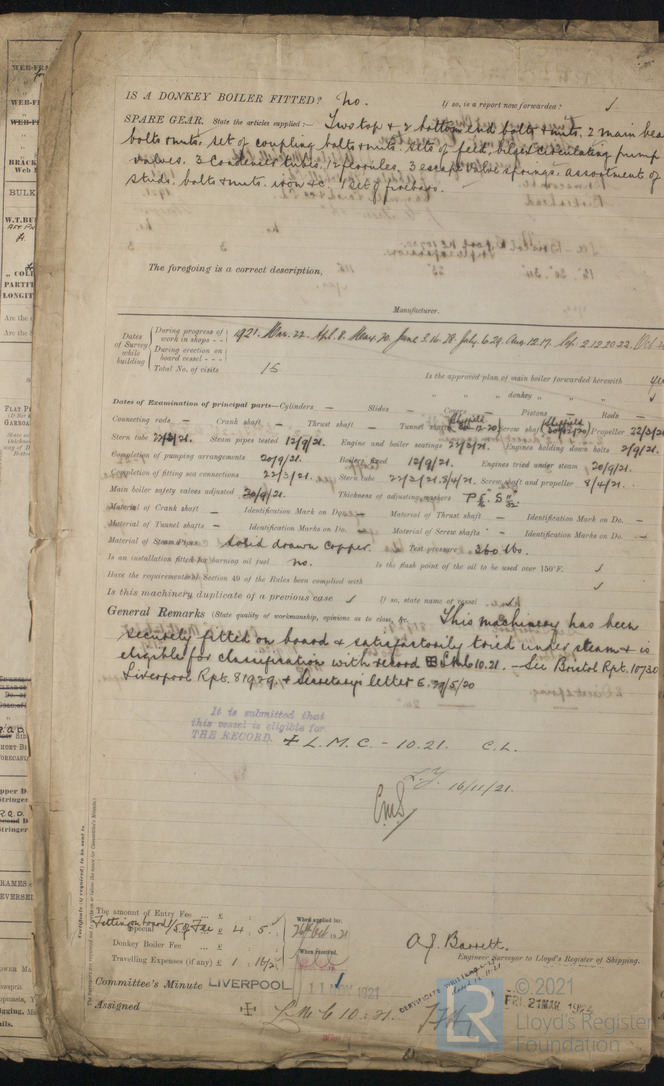 IS A DONKEY BOILER FITTED? No. If so, is a report now forwarded? ✓
SPARE GEAR. State the articles supplied:— Two top & 2 bottom end bolts & nuts. 2 main bea
bolts & nuts, set of coupling bolts & nuts. Sets of feed, bilge & circulating pump
valves. 3 condenser tubes, 12 ferrules, 3 escape valve springs. assortment of
studs, bolts & nuts. iron &c. 1 set of
The foregoing is a correct description,
Manufacturer.
Dates of Survey while building
During progress of work in shops - - 1921. Mar. 22. Apl. 8. May. 30. June 3. 16. 28. July. 6. 29. Aug. 12. 17. Sep. 2. 12. 20. 22. Oct
During erection on board vessel - - -
Total No. of visits 15
Is the approved plan of main boiler forwarded herewith yes
" " " donkey " " " ✓
Dates of Examination of principal parts—Cylinders — Slides — Covers — Pistons — Rods —
Connecting rods — Crank shaft — Thrust shaft — Tunnel shafts Screw shaft Propeller 22/3/21
Stern tube 22/3/21. Steam pipes tested 12/9/21. Engine and boiler seatings 22/3/21. Engines holding down bolts 2/9/21.
Completion of pumping arrangements 20/9/21. Boilers fixed 12/9/21. Engines tried under steam 20/9/21.
Completion of fitting sea connections 22/3/21. Stern tube 22/3/21. 8/4/21. Screw shaft and propeller 8/4/21.
Main boiler safety valves adjusted 20/9/21. Thickness of adjusting washers
Material of Crank shaft — Identification Mark on Do. — Material of Thrust shaft — Identification Mark on Do. —
Material of Tunnel shafts — Identification Marks on Do. — Material of Screw shafts — Identification Marks on Do. —
Material of Steam Pipes Solid drawn Copper. Test pressure 360 lbs.
Is an installation fitted for burning oil fuel no. Is the flash point of the oil to be used over 150°F. ✓
Have the requirements of Section 49 of the Rules been complied with ✓
Is this machinery duplicate of a previous case ✓ If so, state name of vessel ✓
General Remarks (State quality of workmanship, opinions as to class, &c. This machinery has been
securely fitted on board & satisfactorily tried under steam & is
eligible for classification with record LMC 10.21. — See Bristol Rpt. 10730
Liverpool Rpt. 81929. & Secretary's letter E. 29/5/20
It is submitted that
this vessel is eligible for
THE RECORD. + L.M.C. - 10.21. C.L.
16/11/21.
The amount of Entry Fee ... £ : :
Fitting on board 1/5 of Fee
Special ... £ 4 . 5 .
Donkey Boiler Fee ... £ : :
Travelling Expenses (if any) £ 1 . 16/2
When applied for,
26 Oct 1921
When received,
A. J. Barrett.
Engineer Surveyor to Lloyd's Register of Shipping.
Committee's Minute LIVERPOOL
11 NOV 1921
Assigned + L.M.C 10.21.
FRI. 21 MAR
LR
© 2021
Lloyd's Register
Foundation